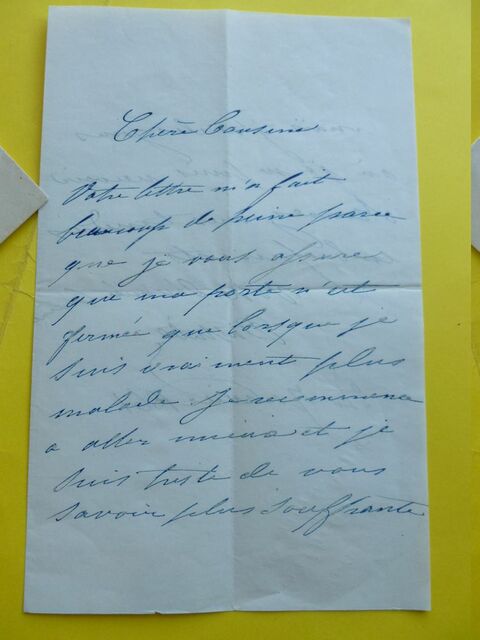 Chère Cousine
Votre lettre m'a fait
beaucoup de peine parce
que je vous assure
que ma porte n'est
fermée que lorsque je
suis vraiment plus
malade Je recommence
a aller mieux et je
suis triste de vous
savoir plus souffrante